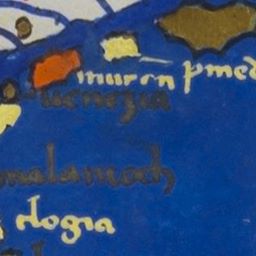 muron pmed
uenezia
malamoch
clogia